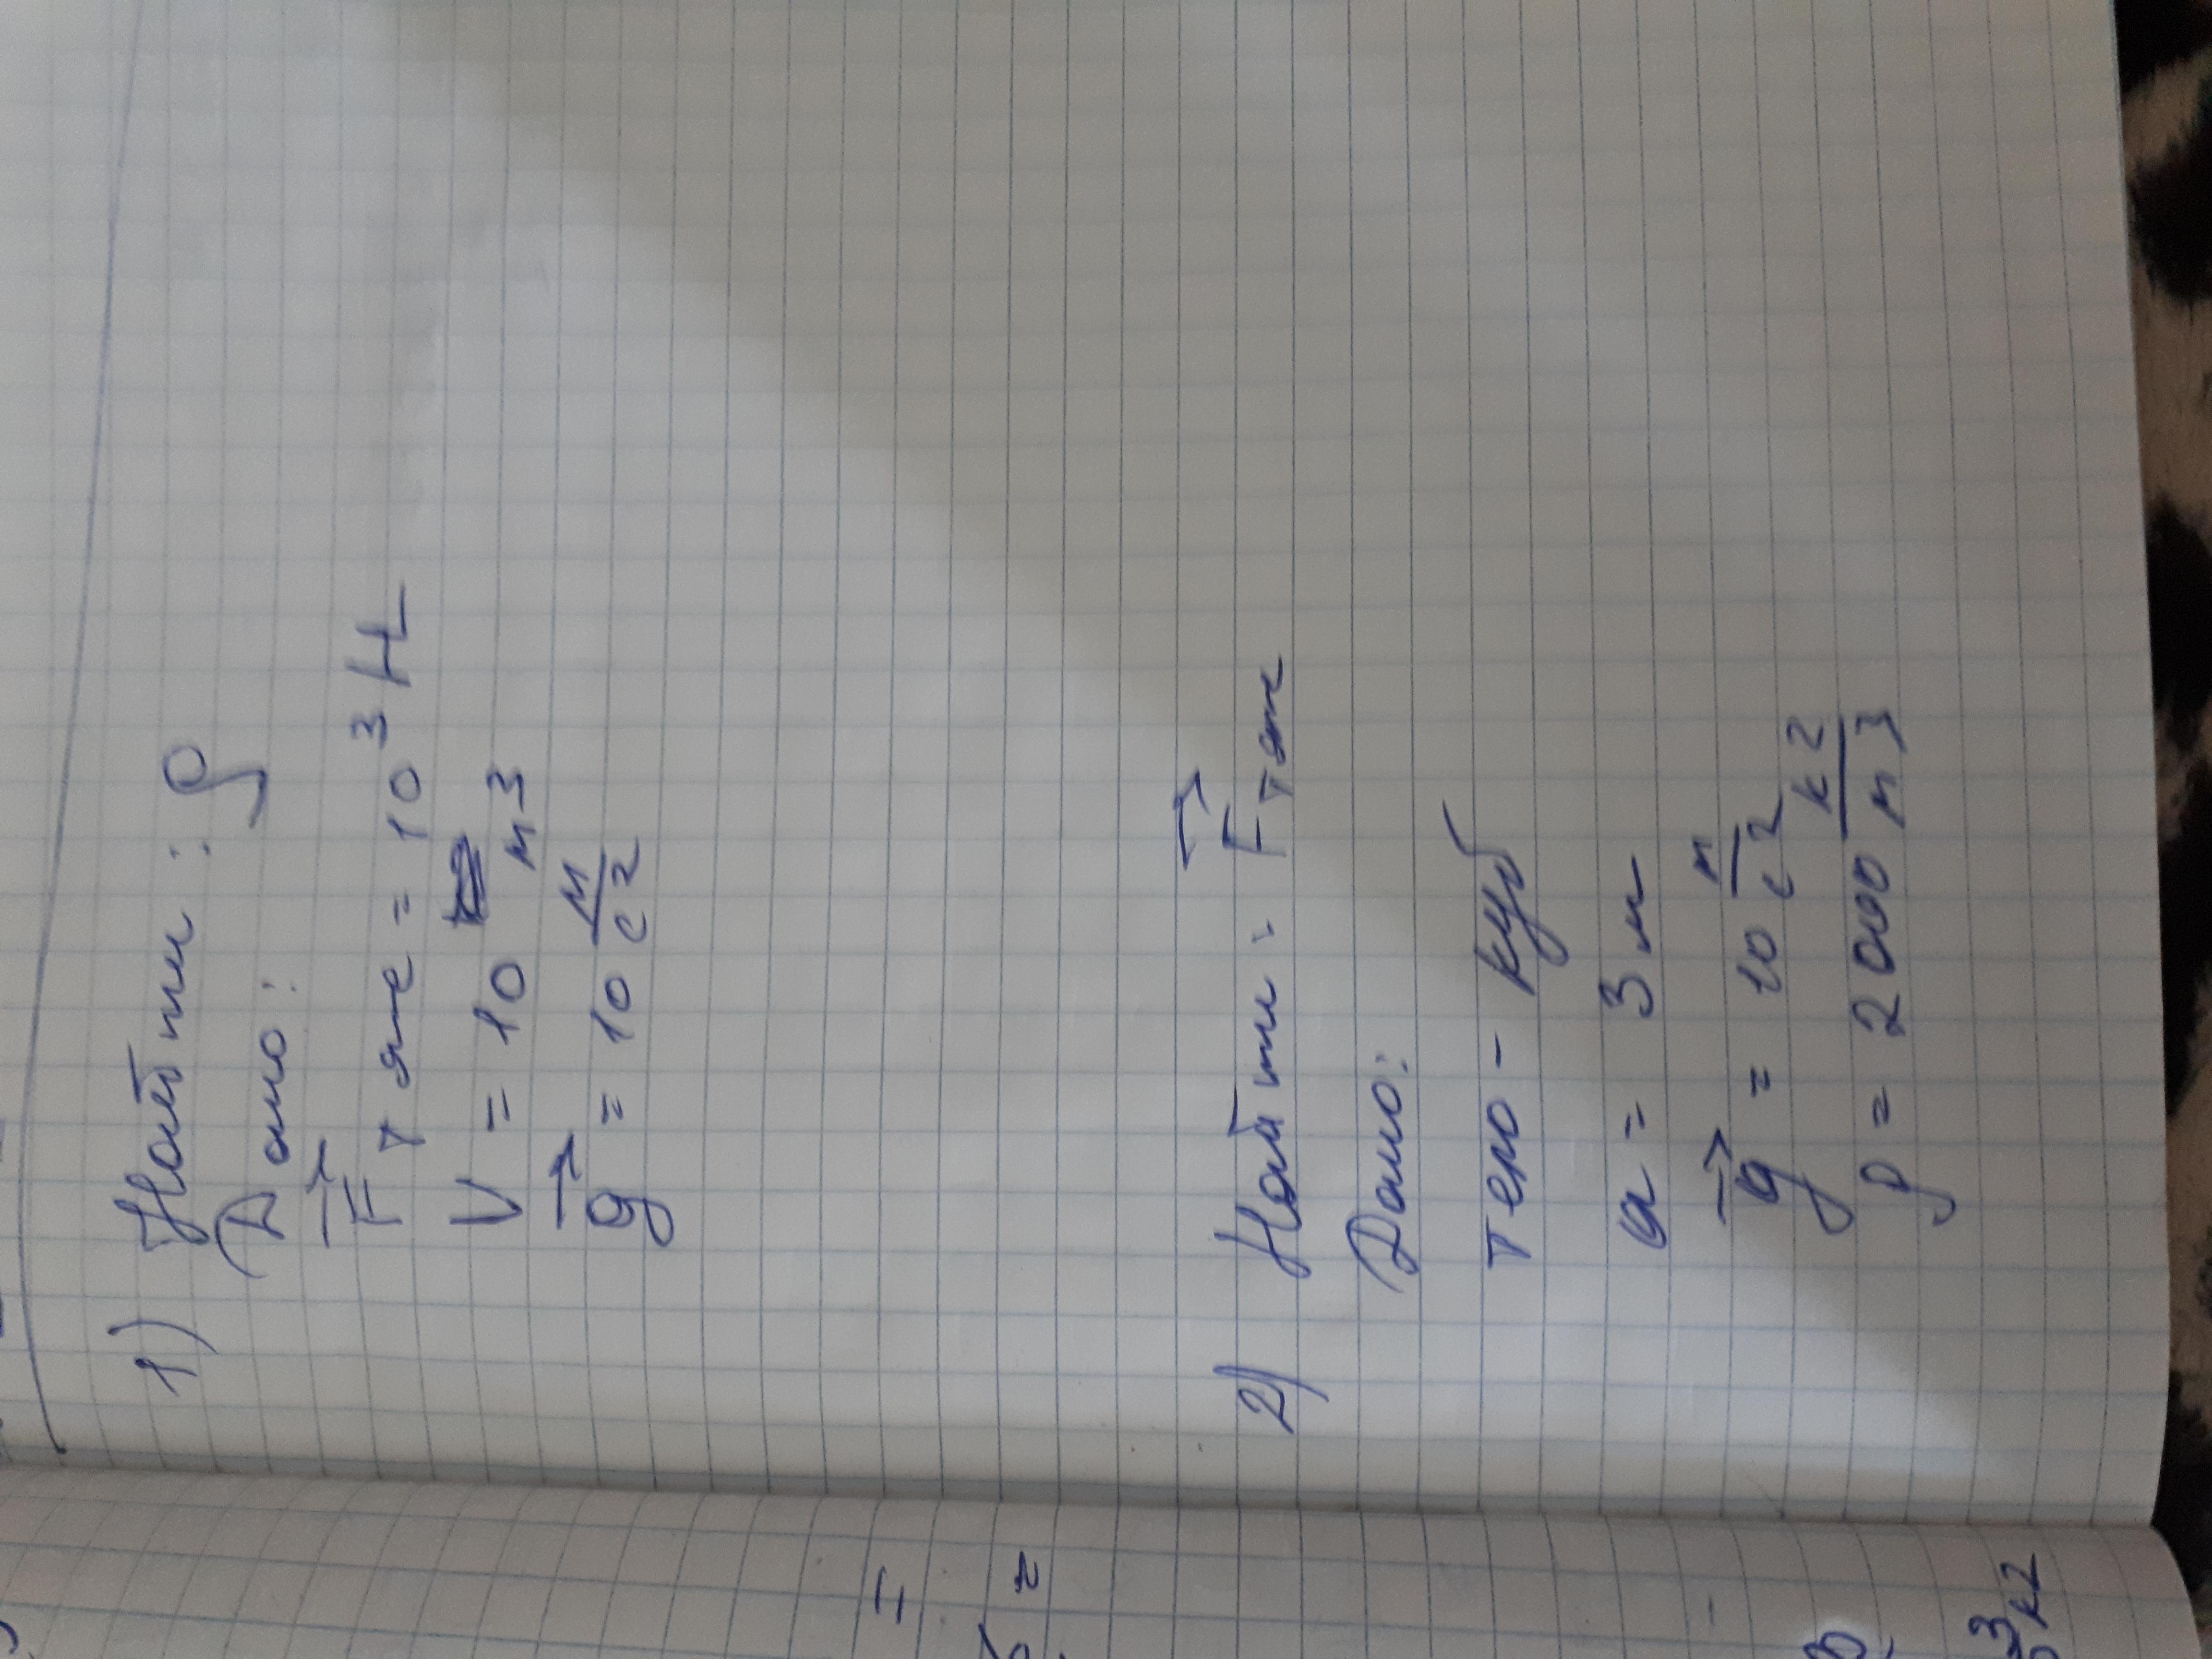 1) Найти: ρ
Дано:
F⃗ тяж = 10³ Н
V = 10 м³
g⃗ = 10 м/с²
2) Найти: F⃗ тяж
Дано:
тело - куб
a = 3 м
g⃗ = 10 м/с²
ρ = 2000 кг/м³